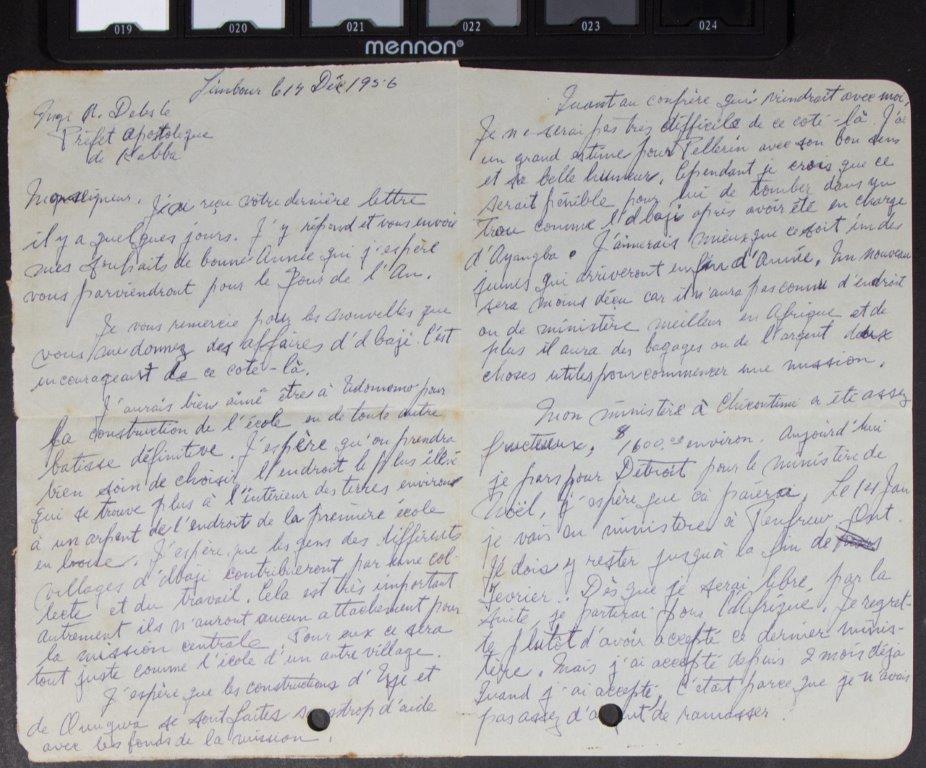 019 020 021 022 023 024
mennon®
Limbour le 14 Déc 1956
Msgr A. Delisle
Préfet apostolique
de Kabba
Monseigneur. J'ai reçu votre dernière lettre
il y a quelques jours. J'y répond et vous envoie
mes souhaits de bonne Année qui j'espère
vous parviendront pour le Jour de l'An.
Je vous remercie pour les nouvelles que
vous me donnez des affaires d'Idbaji. C'est
encourageant de ce coté-là.
J'aurais bien aimé être à Udomomo pour
la construction de l'école ou de toute autre
batisse définitive. J'espère qu'on prendra
bien soin de choisir l'endroit le plus élevé
qui se trouve plus à l'intérieur des terres environ
à un arpent de l'endroit de la première école
en boue. J'espère que les gens des différents
villages d'Idbaji contribueront par une col-
lecte et du travail. Cela est très important
autrement ils n'auront aucun attachement pour
la mission centrale. Pour eux ce sera
tout juste comme l'école d'un autre village.
J'espère que les constructions d'Egje et
de Onugwa se sont faites sans trop d'aide
avec les fonds de la mission.
Quant au confrère qui viendrait avec moi,
Je ne serai pas très difficile de ce coté-là. J'ai
un grand estime pour Pellerin avec son bon sens
et sa belle humeur. Cependant je crois que ce
serait pénible pour lui de tomber dans un
trou comme Idbaji après avoir été en charge
d'Ayangba. J'aimerais mieux que ce soit un des
jeunes qui arriveront en fin d'Année. Un nouveau
sera moins déçu car il n'aura pas connu d'endroit
ou de ministère meilleur en Afrique et de
plus il aura des bagages ou de l'argent deux
choses utiles pour commencer une mission.
Mon ministère à Chicoutimi a été assez
fructueux. $1,600.00 environ. Aujourd'hui
je pars pour Detroit pour le ministère de
Noël, j'espère que ça paiera. Le 14 Jan
je vais au ministère à Renfrew Ont.
Je dois y rester jusqu'à la fin de
Fevrier. Dès que je serai libre, par la
suite, je partirai pour l'Afrique. Je regret-
te plutôt d'avoir accepté ce dernier minis-
tère. Mais j'ai accepté depuis 2 mois déjà
Quand j'ai accepté, c'était parce que je n'avais
pas assez d'argent de ramasser.